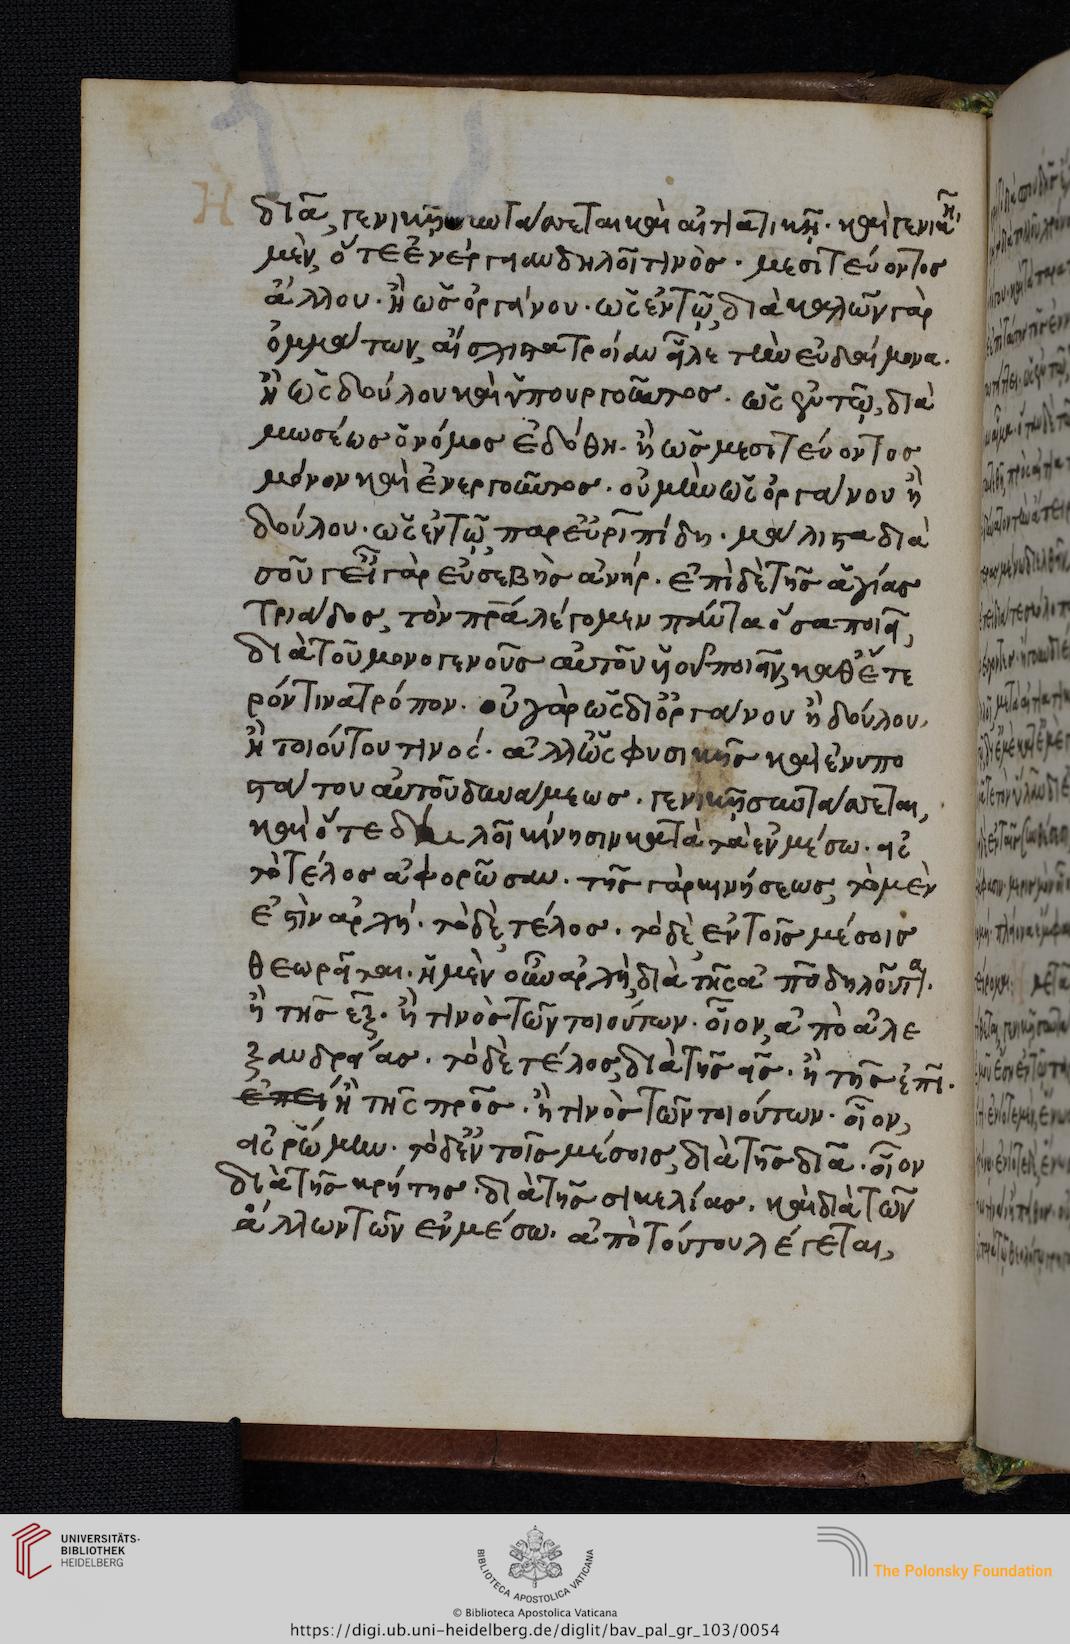 Η διὰ, γενικῇ συντάσσεται καὶ αἰτιατικῇ. καὶ γενικῇ
μὲν, ὅτε ἐνέργειαν δηλοῖ τινὸς. μεσιτεύοντος
ἄλλου. ἢ ὡς ὀργάνου. ὡς ἐν τῷ, διὰ καλῶν γὰρ
ὀμμάτων, αἴσχιστα τροίαν εἷλε τὴν εὐδαίμονα.
ἢ ὡς δούλου καὶ ὑπουργοῦντος. ὡς ἐν τῷ, διὰ
μωσέως ὁ νόμος ἐδόθη. ἢ ὡς μεσιτεύοντος
μόνον καὶ ἐνεργοῦντος. οὐ μὴν ὡς ὀργάνου ἢ
δούλου. ὡς ἐν τῷ παρ εὐριπίδη. μάλιστα διὰ
σοῦ γὰρ εὐσεβὴς ἀνήρ. ἐπὶ δὲ τῆς ἁγίας
τριάδος, τὸν πρα λέγομεν πάντα ὅσα ποιεῖ,
διὰ τοῦ μονογενοῦς αὐτοῦ υἱοῦ ποιεῖν, καθ ἕτε
ρόν τινα τρόπον. οὐ γὰρ ὡς δι ὀργάνου ἢ δούλου,
ἢ τοιούτου τινός. ἀλλ ὡς φυσικῆς καὶ ἐνυπο
στάτου αὐτοῦ δυνάμεως. γενικῇ συντάσσεται,
καὶ ὅτε δηλοῖ κίνησιν κατὰ τὰ ἐν μέσω. εἰς
τὸ τέλος ἀφορῶσαν. τῆς γὰρ κινήσεως, τὸ μὲν
ἐστὶν ἀρχή. τὸ δὲ, τέλος. τὸ δὲ ἐν τοῖς μέσοις
θεωρεῖται. ἡ μὲν οὖν ἀρχὴ, διὰ τῆς ἀπὸ δηλοῦται.
ἢ τῆς ἐξ. ἢ τινὸς τῶν τοιούτων. οἷον, ἀπὸ ἀλε
ξανδρείας. τὸ δὲ τέλος, διὰ τῆς εἰς. ἢ τῆς ἐπὶ.
ἐπεὶ ἢ τῆς πρὸς. ἢ τινὸς τῶν τοιούτων. οἷον,
εἰς ῥώμην. τὸ δ ἐν τοῖς μέσοις, διὰ τῆς διὰ. οἷον
διὰ τῆς κρήτης. διὰ τῆς σικελίας. καὶ διὰ τῶν
ἄλλων τῶν ἐν μέσω. ἀπὸ τούτου λέγεται,
UNIVERSITÄTS-
BIBLIOTHEK
HEIDELBERG
BIBLIOTECA APOSTOLICA VATICANA
The Polonsky Foundation
© Biblioteca Apostolica Vaticana
https://digi.ub.uni-heidelberg.de/diglit/bav_pal_gr_103/0054